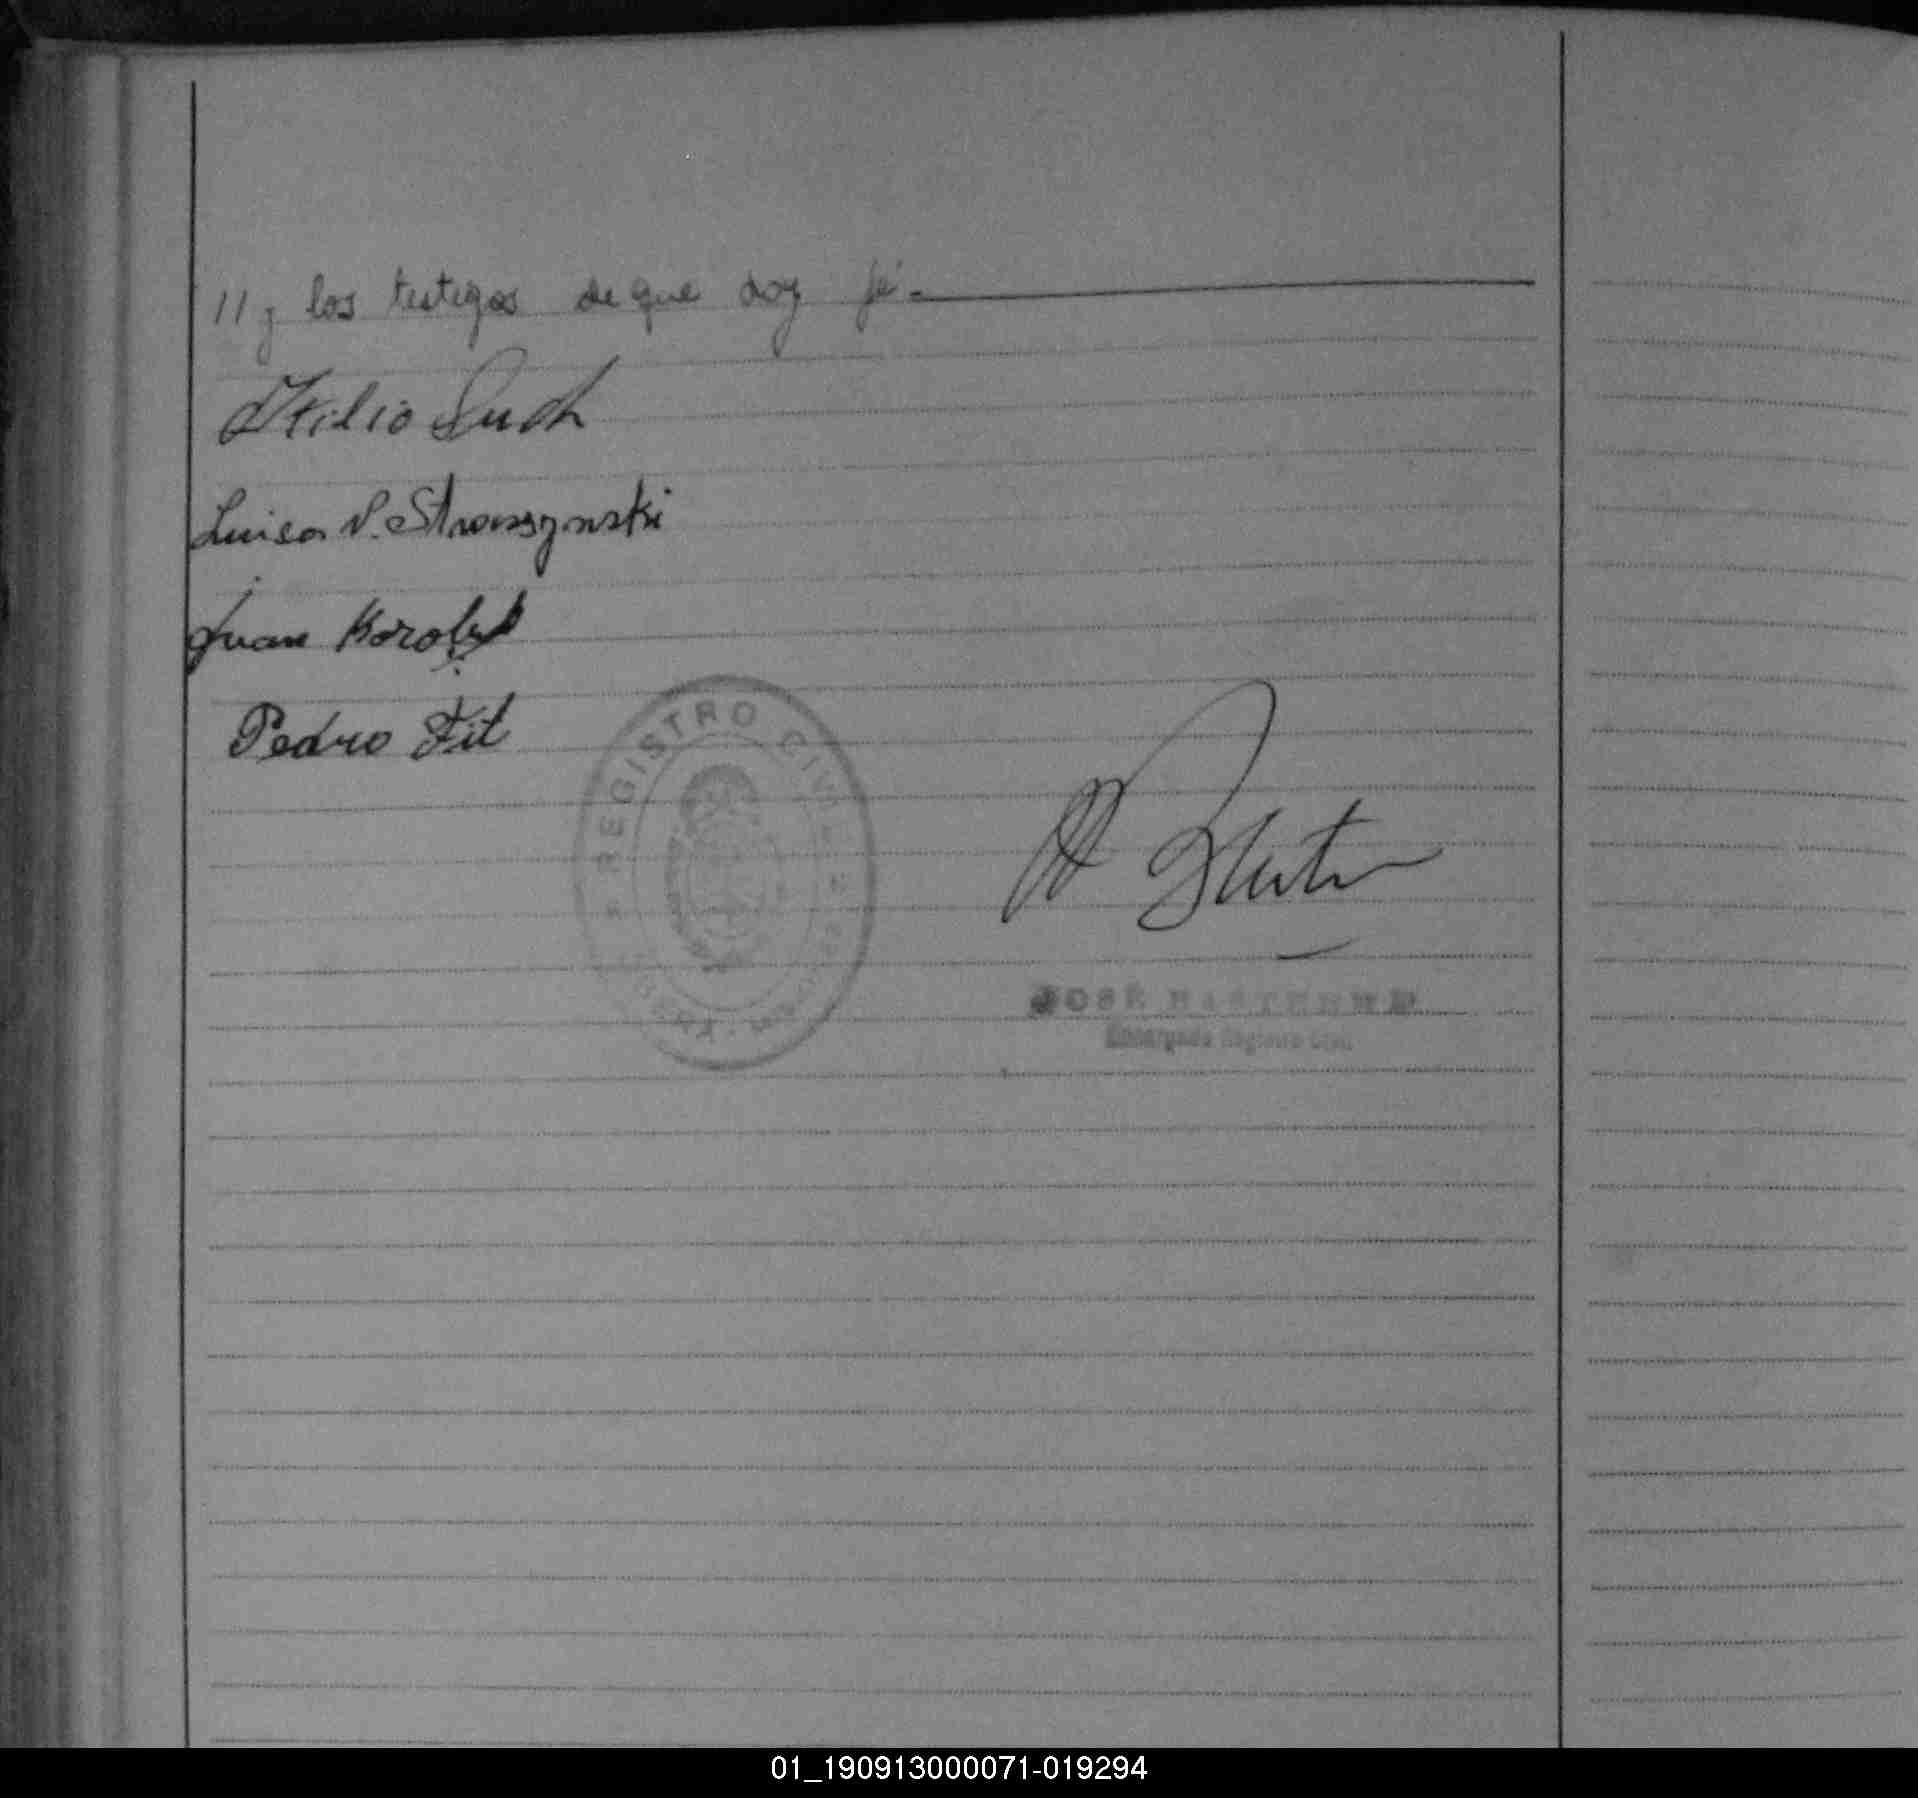 // y los testigos de que doy fé.-
Atilio Such
Luisa V. Straszynski
Juan
Pedro Fit
REGISTRO CIVIL
JOSÉ
Encargado Registro Civil
01_190913000071-019294